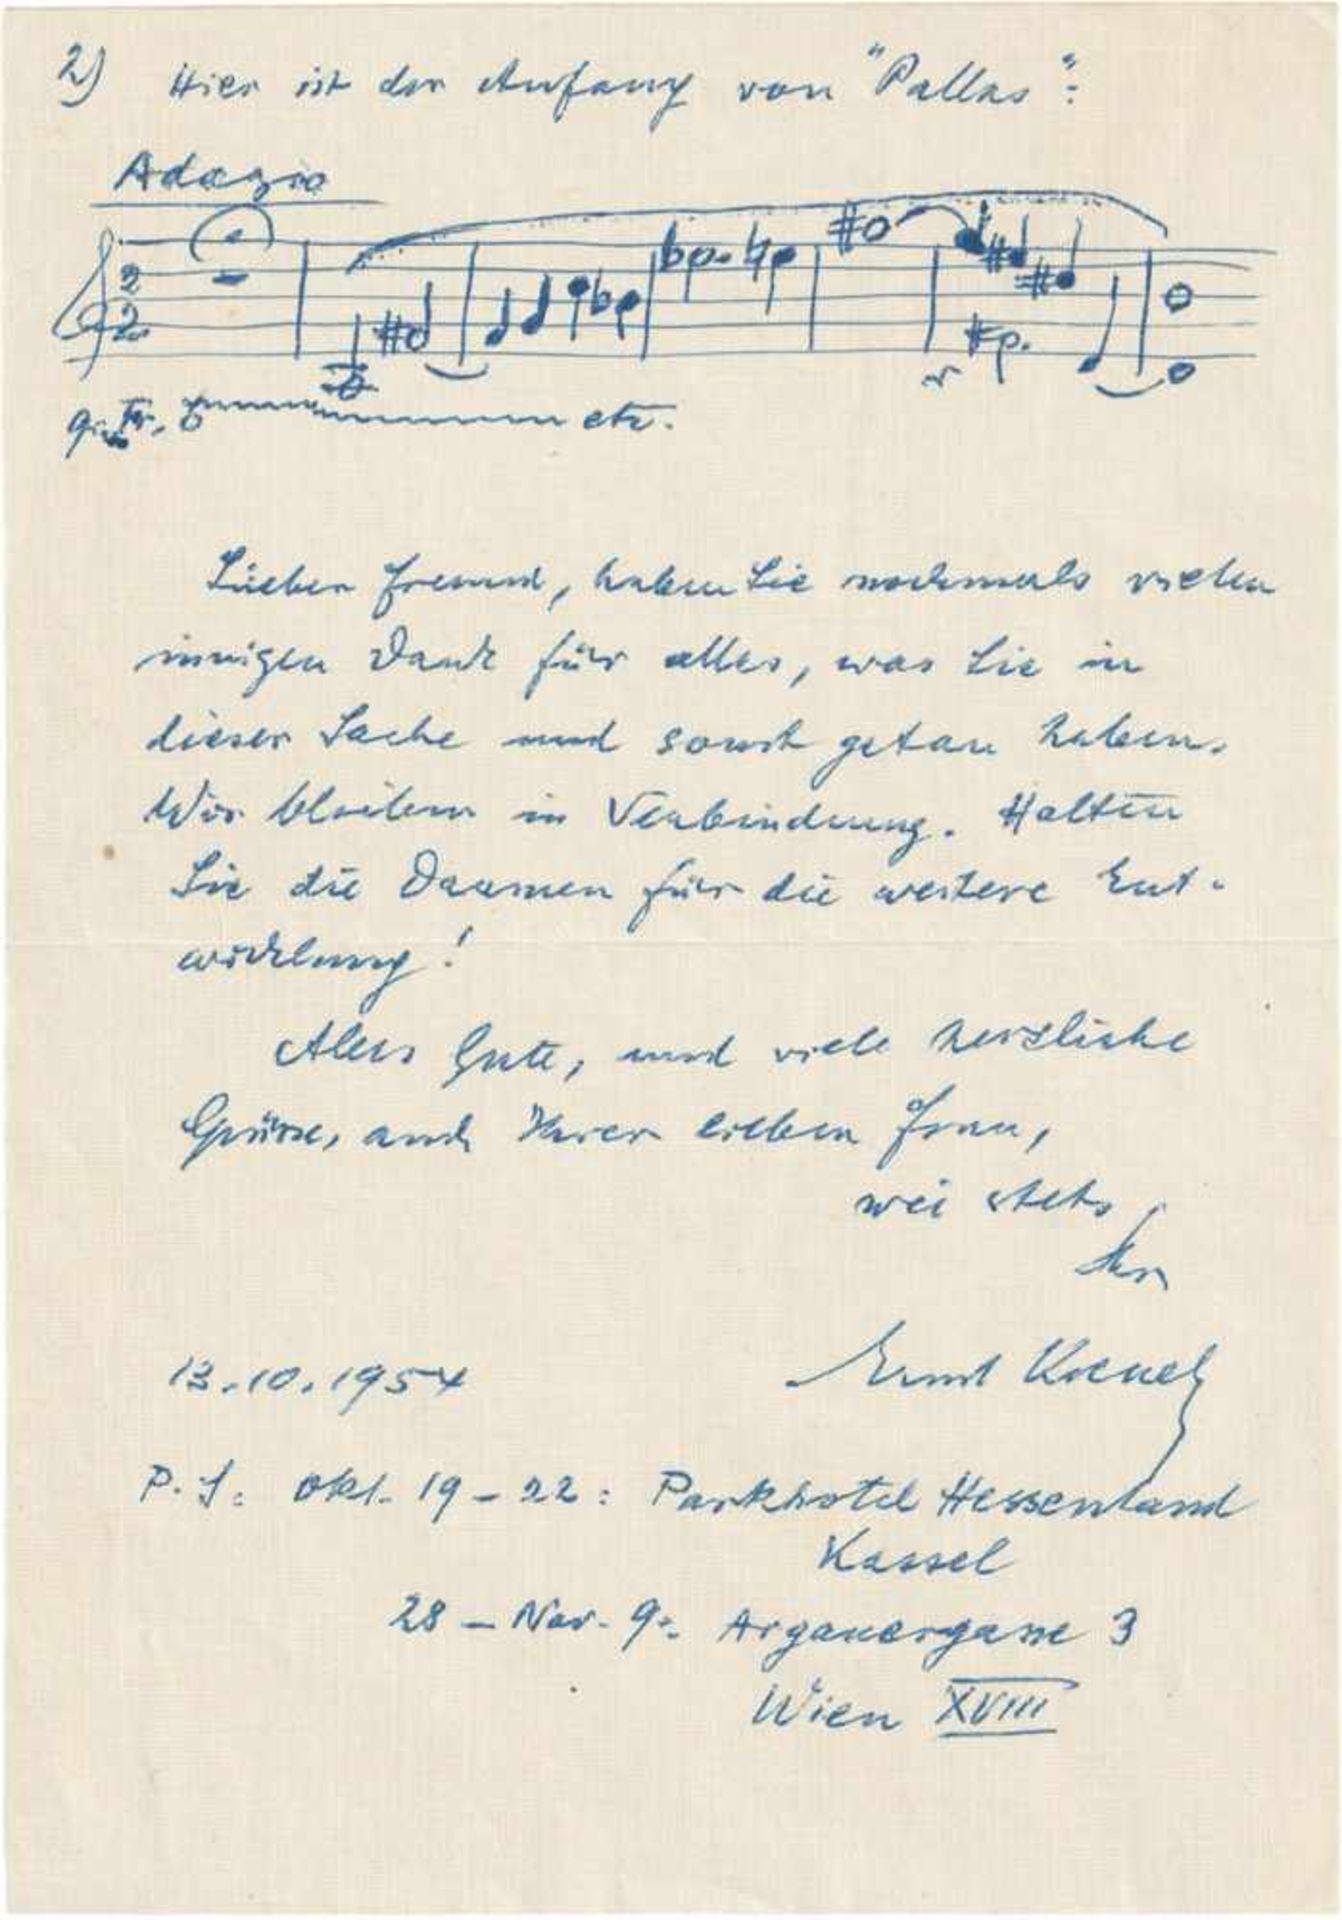 2) Hier ist der Anfang von "Pallas":
Adagio
2
2
gr. Tr. etc.
Lieber Freund, haben Sie nochmals vielen
innigen Dank für alles, was Sie in
dieser Sache und sonst getan haben.
Wir bleiben in Verbindung. Halten
Sie die Daumen für die weitere Ent-
wicklung!
Alles Gute, und viele herzliche
Grüsse, auch Ihrer lieben Frau,
wie stets
Ihr
13.10.1954 Ernst Krenek
P.S: Okt. 19-22: Parkhotel Hessenland
Kassel
28 - Nov. 9: Argauergasse 3
Wien XVIII